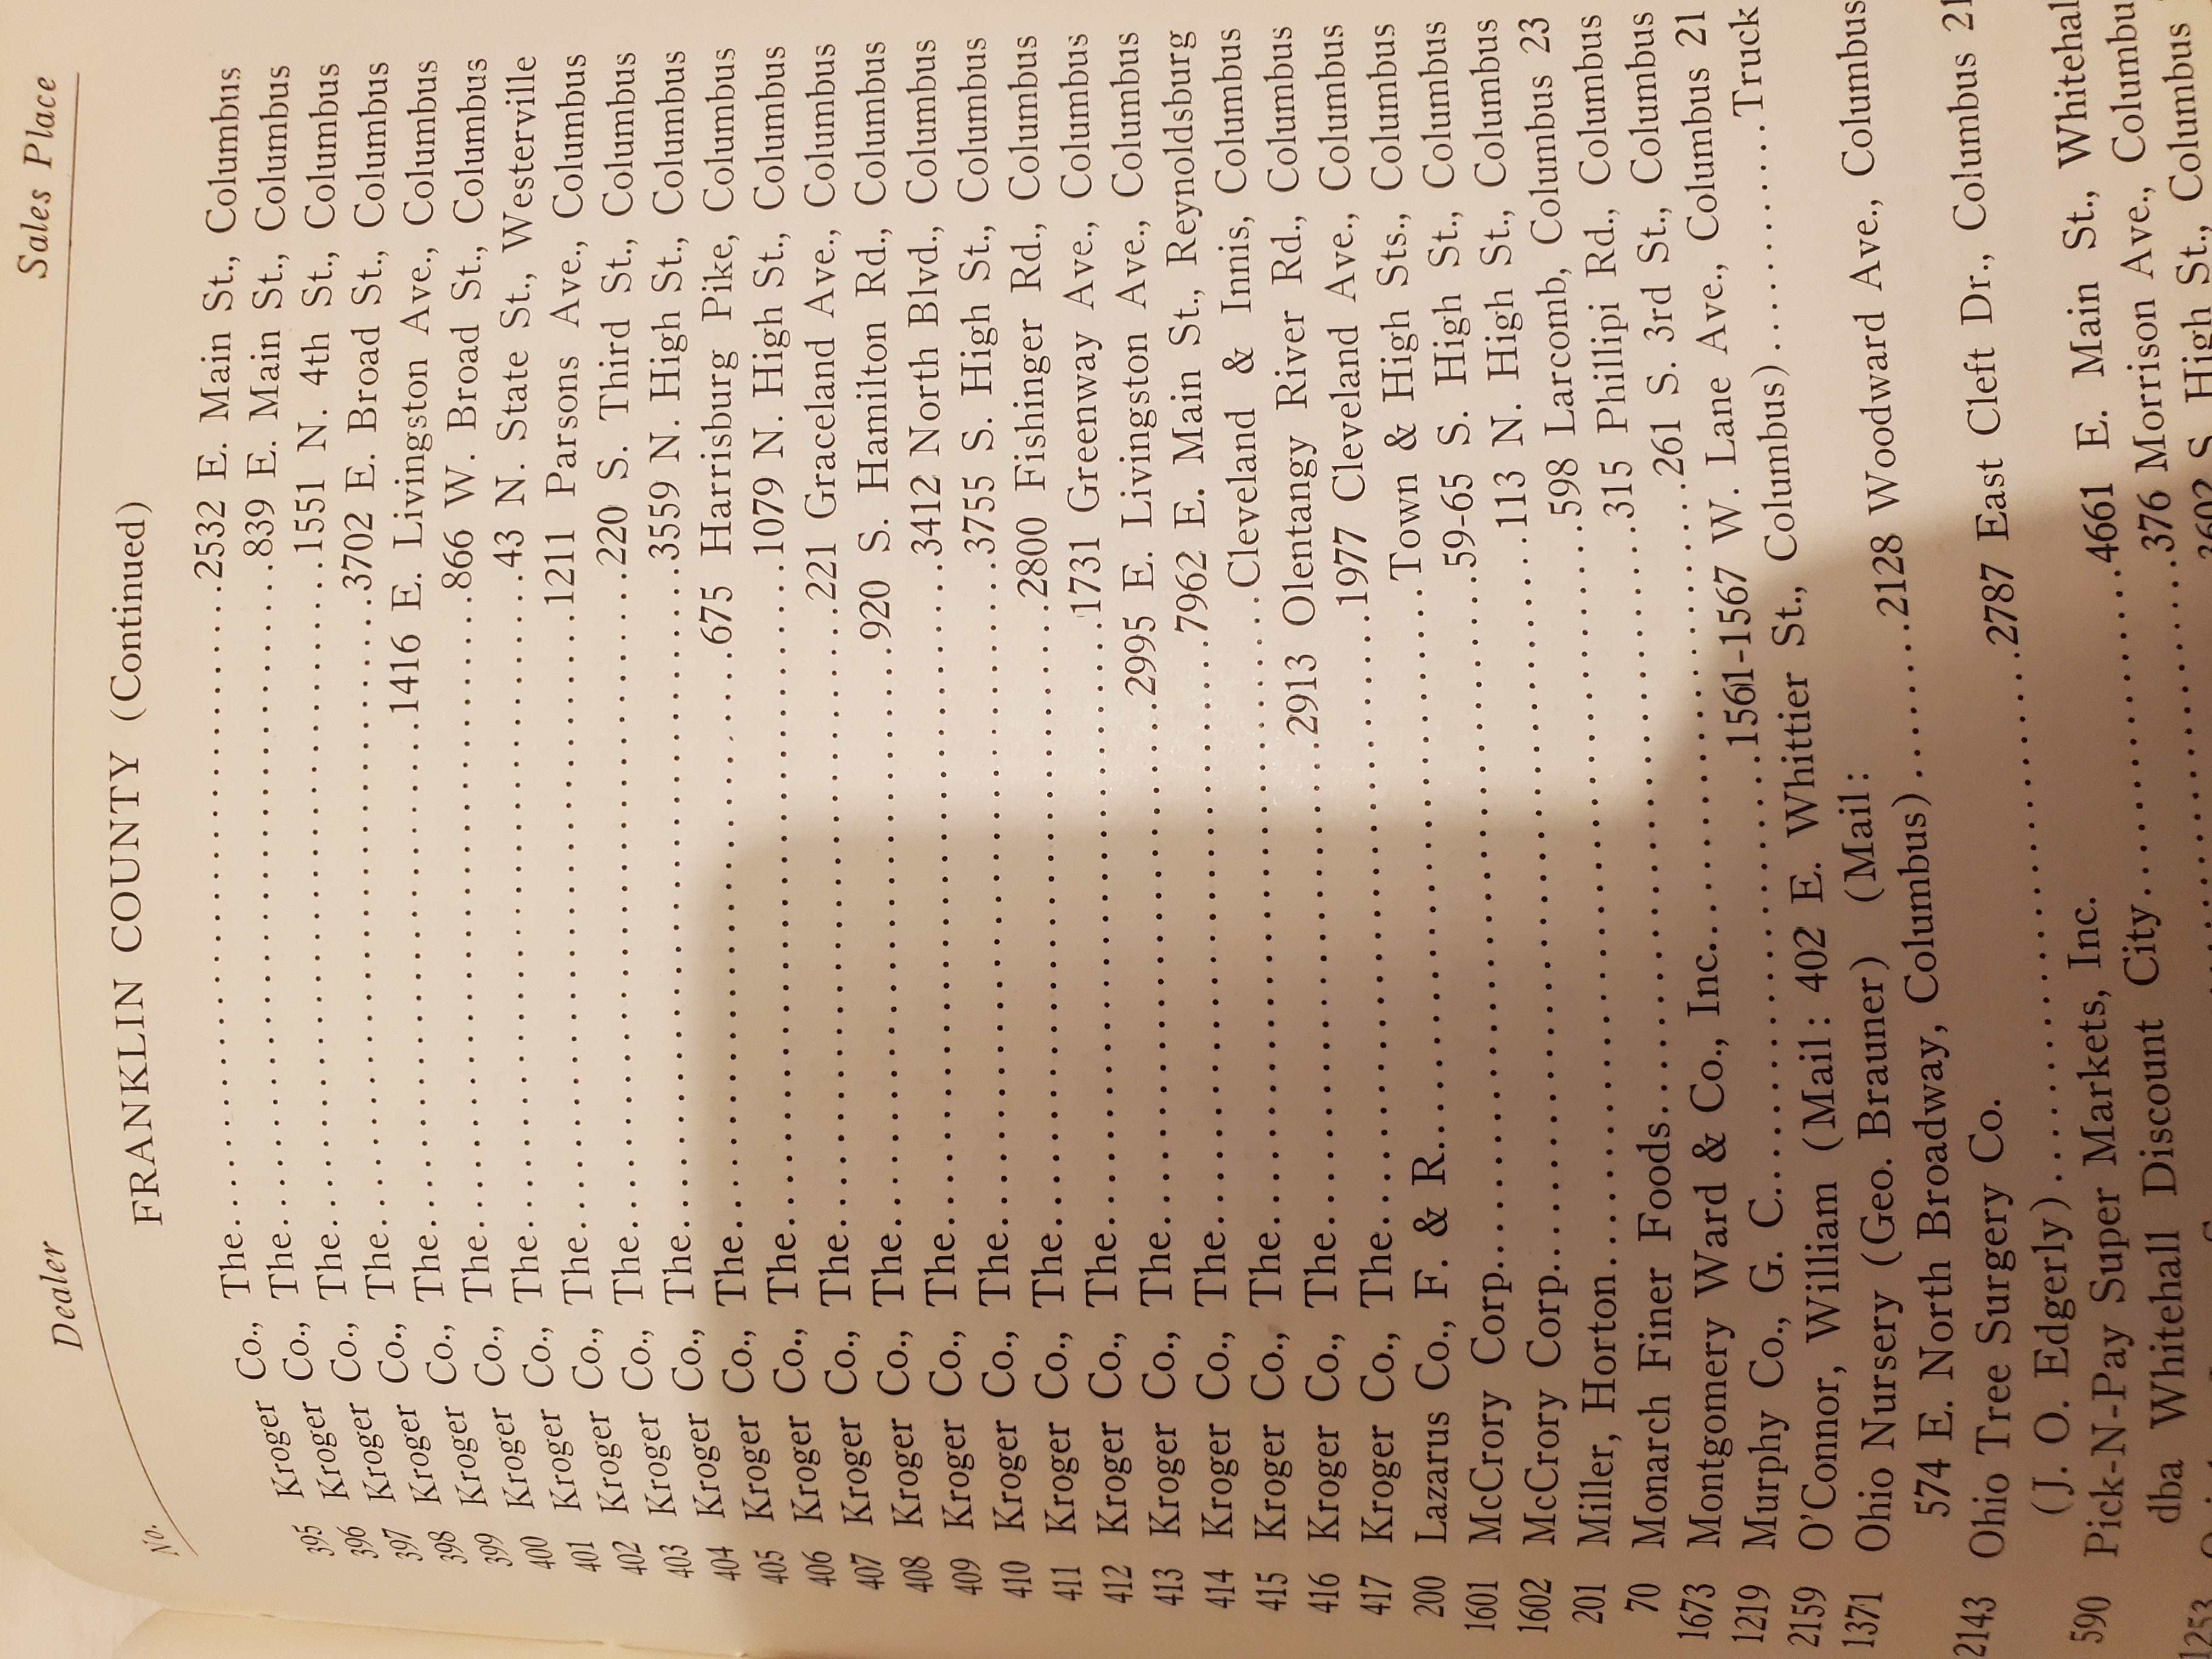 No. Dealer Sales Place
FRANKLIN COUNTY (Continued)
395 Kroger Co., The....................2532 E. Main St., Columbus
396 Kroger Co., The....................839 E. Main St., Columbus
397 Kroger Co., The....................1551 N. 4th St., Columbus
398 Kroger Co., The....................3702 E. Broad St., Columbus
399 Kroger Co., The....................1416 E. Livingston Ave., Columbus
400 Kroger Co., The....................866 W. Broad St., Columbus
401 Kroger Co., The....................43 N. State St., Westerville
402 Kroger Co., The....................1211 Parsons Ave., Columbus
403 Kroger Co., The....................220 S. Third St., Columbus
404 Kroger Co., The....................3559 N. High St., Columbus
405 Kroger Co., The....................675 Harrisburg Pike, Columbus
406 Kroger Co., The....................1079 N. High St., Columbus
407 Kroger Co., The....................221 Graceland Ave., Columbus
408 Kroger Co., The....................920 S. Hamilton Rd., Columbus
409 Kroger Co., The....................3412 North Blvd., Columbus
410 Kroger Co., The....................3755 S. High St., Columbus
411 Kroger Co., The....................2800 Fishinger Rd., Columbus
412 Kroger Co., The....................1731 Greenway Ave., Columbus
413 Kroger Co., The....................2995 E. Livingston Ave., Columbus
414 Kroger Co., The....................7962 E. Main St., Reynoldsburg
415 Kroger Co., The....................Cleveland & Innis, Columbus
416 Kroger Co., The....................2913 Olentangy River Rd., Columbus
417 Kroger Co., The....................1977 Cleveland Ave., Columbus
200 Lazarus Co., F. & R....................Town & High Sts., Columbus
1601 McCrory Corp....................59-65 S. High St., Columbus
1602 McCrory Corp....................113 N. High St., Columbus
201 Miller, Horton....................598 Larcomb, Columbus 23
70 Monarch Finer Foods....................315 Phillipi Rd., Columbus
1673 Montgomery Ward & Co., Inc....................261 S. 3rd St., Columbus
1219 Murphy Co., G. C....................1561-1567 W. Lane Ave., Columbus 21
2159 O'Connor, William (Mail: 402 E. Whittier St., Columbus)............Truck
1371 Ohio Nursery (Geo. Brauner) (Mail:
574 E. North Broadway, Columbus)........2128 Woodward Ave., Columbus
2143 Ohio Tree Surgery Co.
(J. O. Edgerly)....................2787 East Cleft Dr., Columbus 21
590 Pick-N-Pay Super Markets, Inc.
dba Whitehall Discount City....................4661 E. Main St., Whitehal
1253 376 Morrison Ave., Columbu
S. High St., Columbus